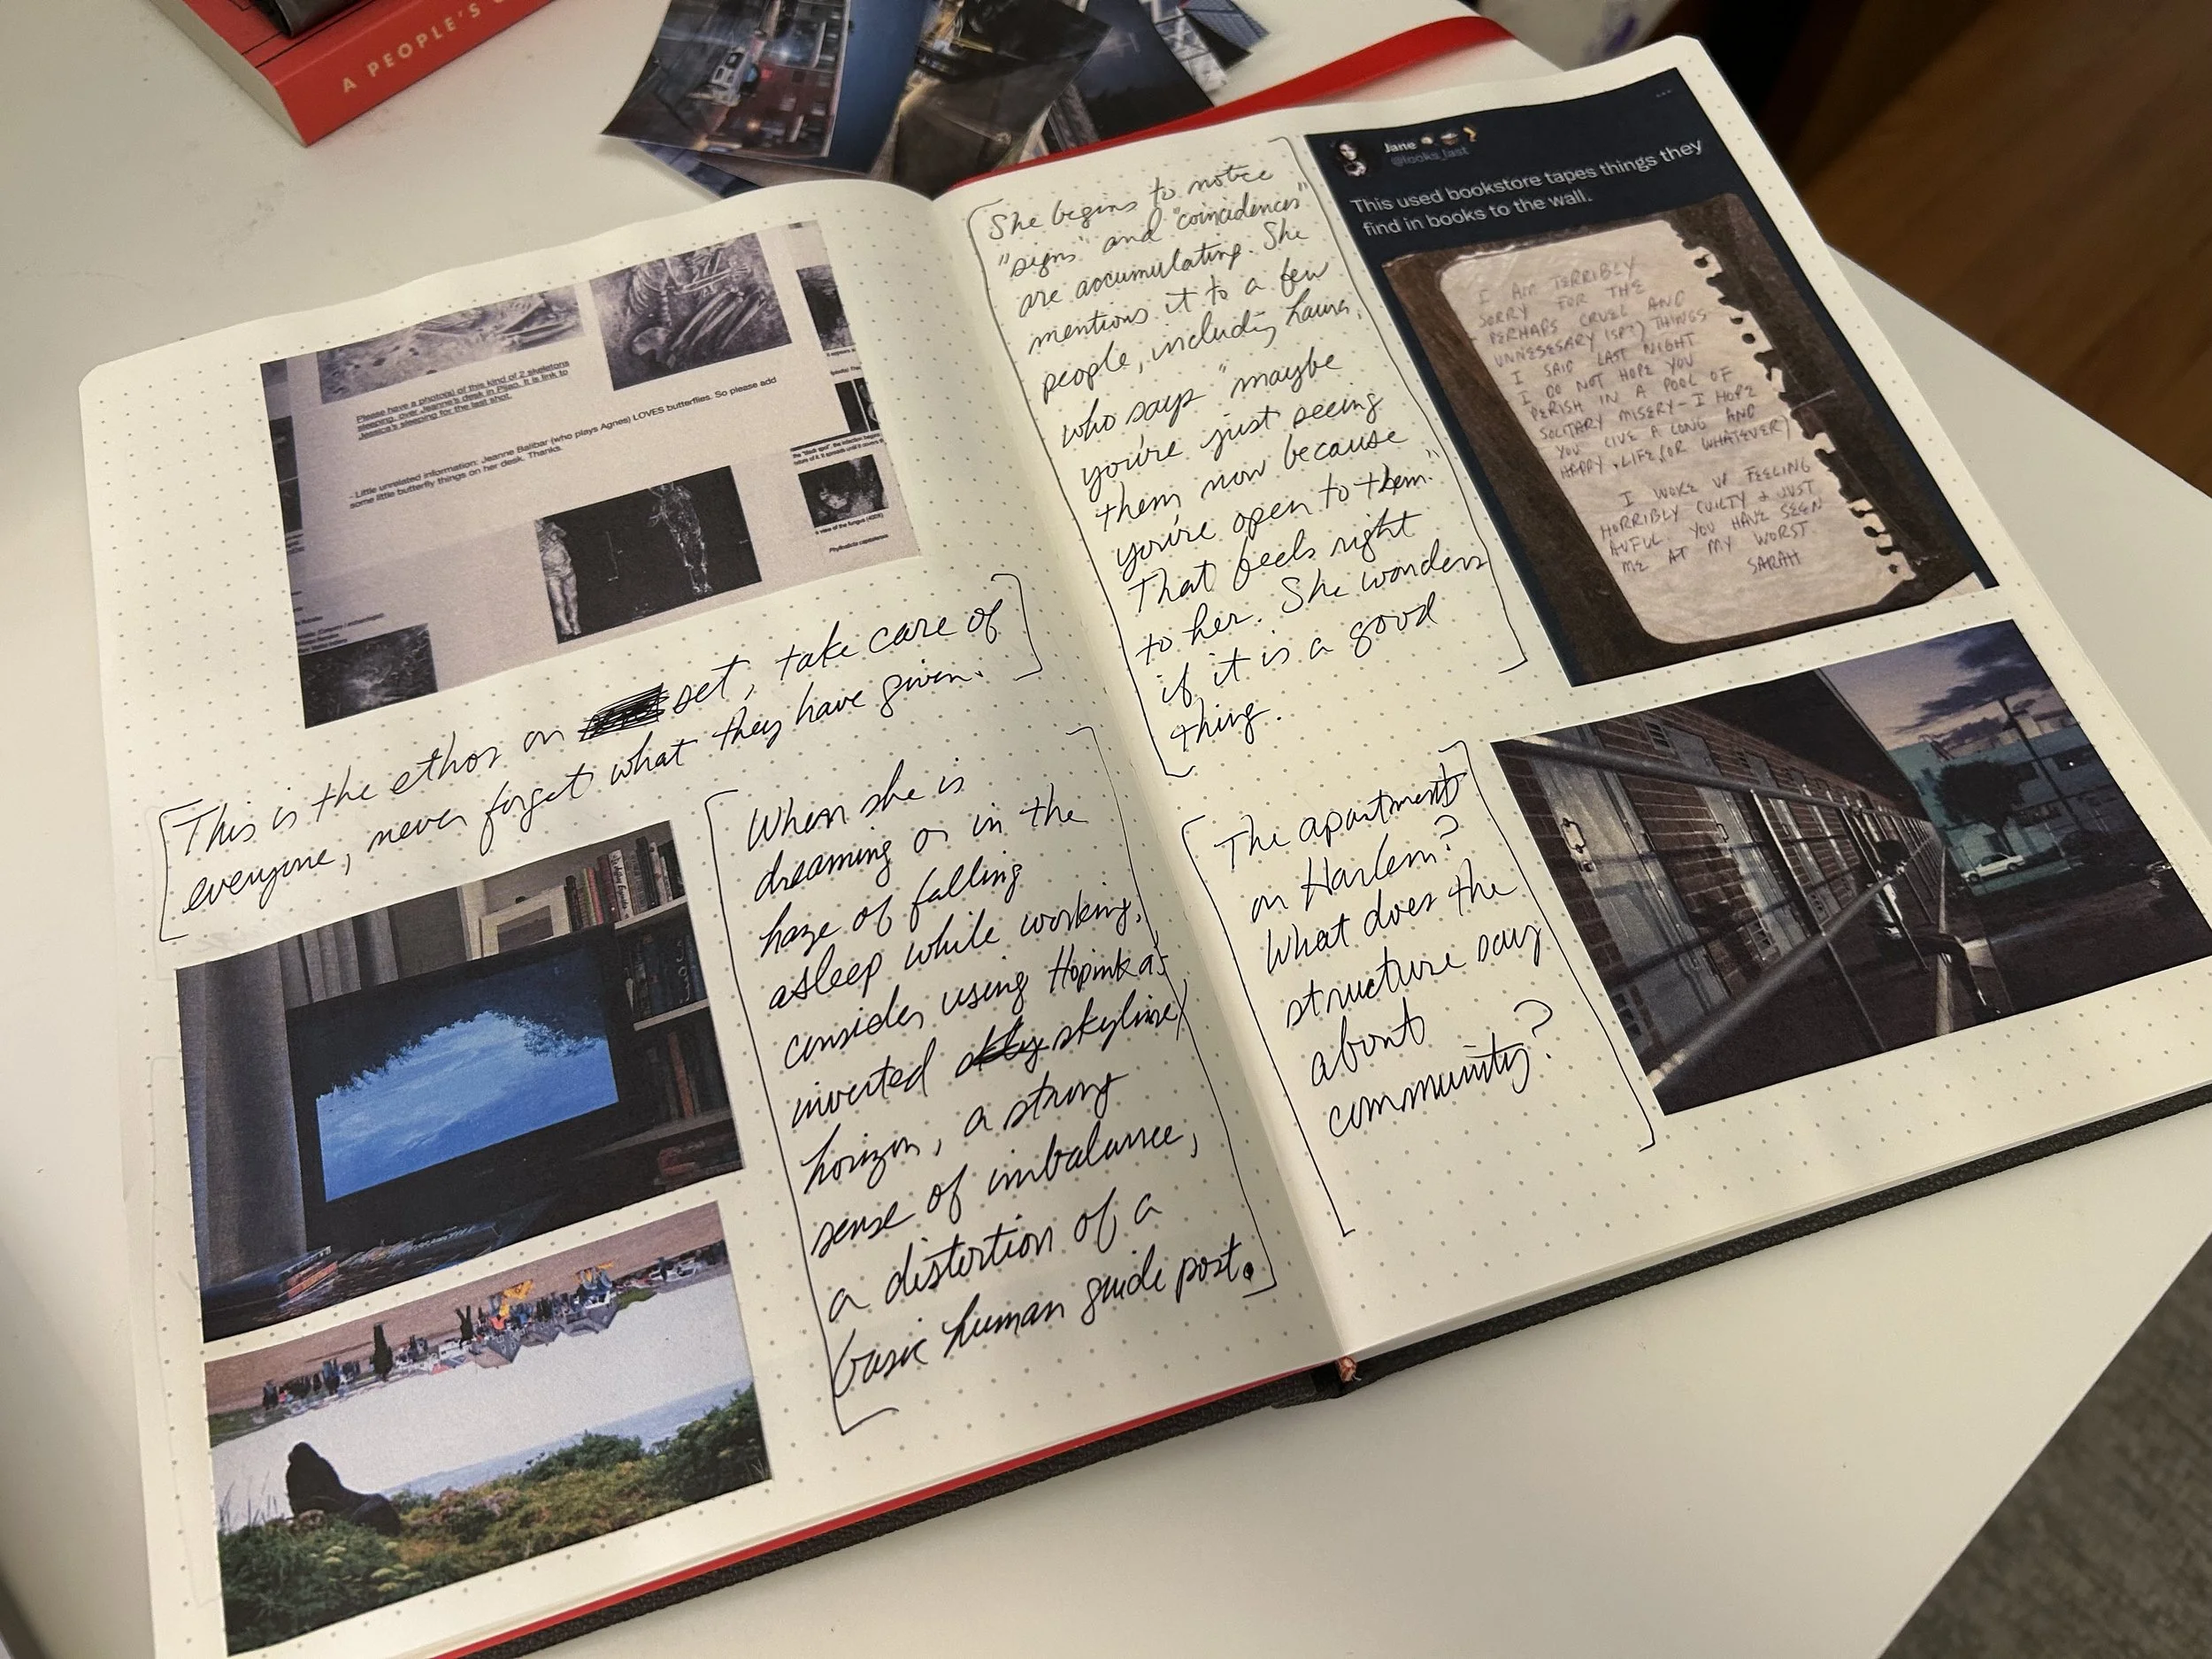 A PEOPLE'S
Please have a photo(s) of this kind of 2 skeletons
sleeping, over Jeanne's desk in Pijao. It is link to
Jessica's sleeping for the last shot.
- Little unrelated information: Jeanne Balibar (who plays Agnes) LOVES butterflies. So please add
some little butterfly things on her desk. Thanks.
This is the ethos on set, take care of
everyone, never forget what they have given.
When she is
dreaming or in the
haze of falling
asleep while working,
consider using Hopinka's
inverted skyline/
horizon, a strong
sense of imbalance,
a distortion of a
basic human guide post.
She begins to notice
"signs" and "coincidences"
are accumulating. She
mentions it to a few
people, including Laura,
who says "maybe
you're just seeing
them now because
you're open to them."
That feels right
to her. She wonders
if it is a good
thing.
The apartment
on Harlem?
What does the
structure say
about
community?
Jane
@looks_last
This used bookstore tapes things they
find in books to the wall.
I AM TERRIBLY
SORRY FOR THE
PERHAPS CRUEL AND
UNNESESARY (SP?) THINGS
I SAID LAST NIGHT
I DO NOT HOPE YOU
PERISH IN A POOL OF
SOLITARY MISERY - I HOPE
YOU LIVE A LONG AND
HAPPY LIFE (OR WHATEVER)
I WOKE UP FEELING
HORRIBLY GUILTY & JUST
AWFUL. YOU HAVE SEEN
ME AT MY WORST
SARAH